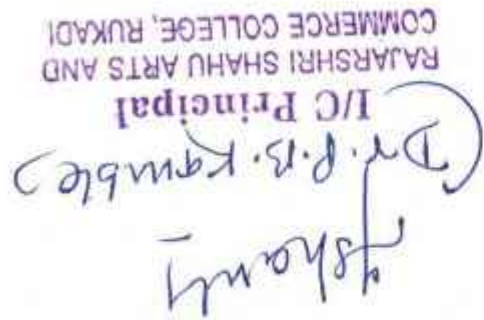 (Dr. P. B. Kamble)
I/C Principal
RAJARSHRI SHAHU ARTS AND
COMMERCE COLLEGE, RUKADI